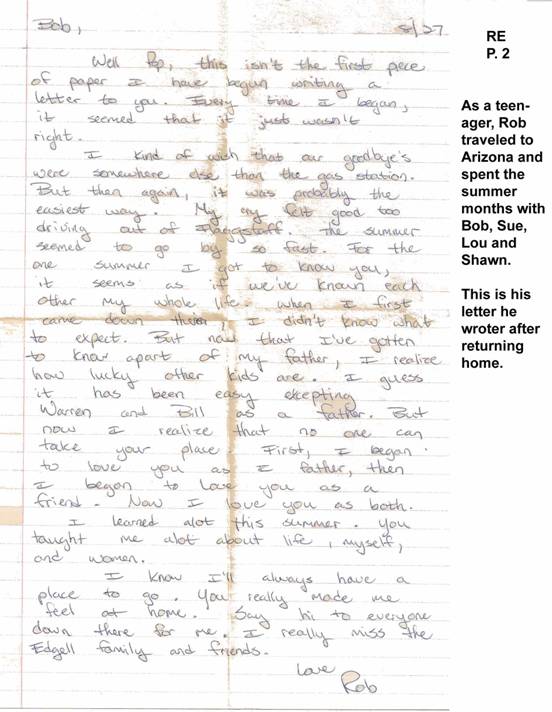 Bob,
8/27
Well Pop, this isn't the first piece
of paper I have begun writing a
letter to you. Every time I began,
it seemed that it just wasn't
right.
I kind of wish that our goodbye's
were somewhere else than the gas station.
But then again, it was probably the
easiest way. My cry felt good too
driving out of Flaggstaff. The summer
seemed to go by so fast. For the
one summer I got to know you,
it seems as if we've known each
other my whole life. When I first
came down I didn't know what
to expect. But now that I've gotten
to know apart of my father, I realize
how lucky other kids are. I guess
it has been easy
Warren and Bill as a father. But
now I realize that no one can
take your place. First, I began
to love you as father, then
I began to love you as a
friend. Now I love you as both.
I learned alot this summer. You
taught me alot about life, myself,
and women.
I know I'll always have a
place to go. You really made me
feel at home. Say hi to everyone
down there for me. I really miss the
Edgell family and friends.
Love
Rob
RE
P. 2
As a teen-
ager, Rob
traveled to
Arizona and
spent the
summer
months with
Bob, Sue,
Lou and
Shawn.
This is his
letter he
wroter after
returning
home.